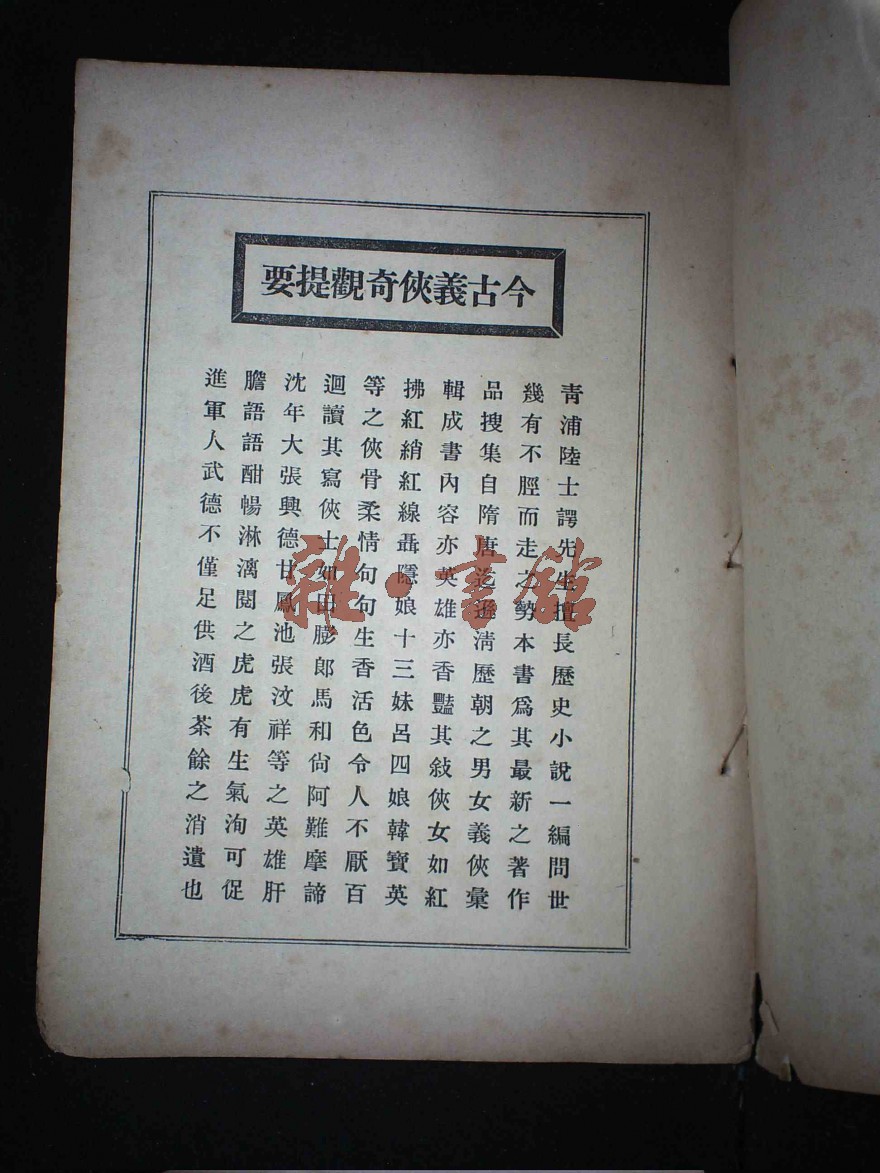 今古義俠奇觀提要
青浦陸士諤先生擅長歷史小說一編問世
幾有不脛而走之勢本書爲其最新之著作
品搜集自隋唐迄遜淸歷朝之男女義俠彙
輯成書內容亦英雄亦香豔其敍俠女如紅
拂紅綃紅線聶隱娘十三妹呂四娘韓寶英
等之俠骨柔情句句生香活色令人不厭百
迴讀其寫俠士如田膨郞馬和尙阿難摩諦
沈年大張興德甘鳳池張汶祥等之英雄肝
膽語語酣暢淋漓閱之虎虎有生氣洵可促
進軍人武德不僅足供酒後茶餘之消遺也
雜·書館